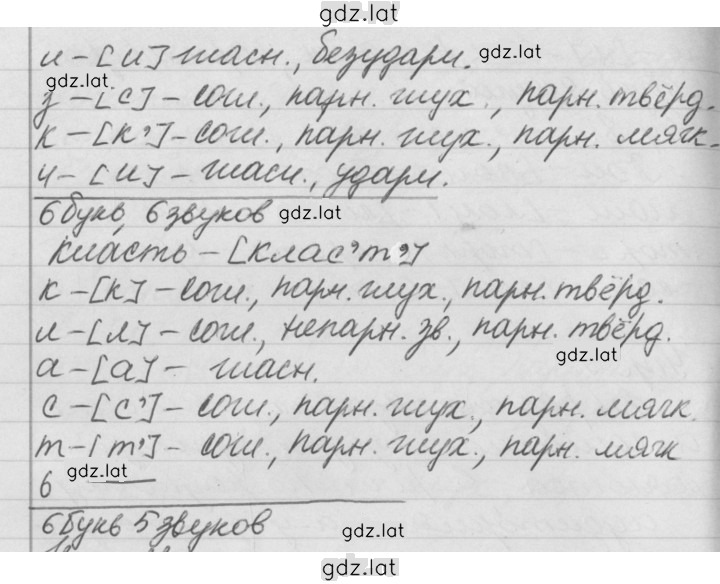 gdz.lat
и-[и] гласн., безударн. gdz.lat
gdz.lat
з-[с]-согл., парн. глух., парн. твёрд.
к-[к']-согл., парн. глух., парн. мягк.
и-[и]-гласн., ударн.
6 букв, 6 звуков gdz.lat
класть-[клас'т']
к-[к]-согл., парн. глух., парн. твёрд.
л-[л]-согл., непарн. зв., парн. твёрд.
gdz.lat
а-[а]-гласн.
с-[с']-согл., парн. глух., парн. мягк.
т-[т']-согл., парн. глух., парн. мягк
gdz.lat
6 букв 5 звуков
gdz.lat
gdz.lat